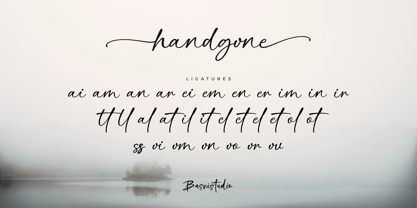 handgone
LIGATURES
ai am an ar ei em en er im in ir
tt ll al at il it el et el et ol ot
ss vi om on oo or ov
Basnistudio